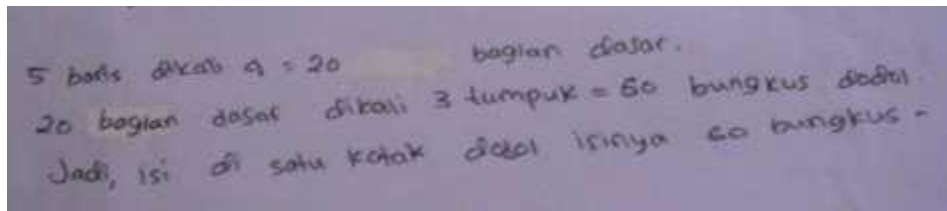 5 baris dikali 4 = 20 bagian dasar.
20 bagian dasar dikali 3 tumpuk = 60 bungkus dodol.
Jadi, isi di satu kotak dodol isinya 60 bungkus.